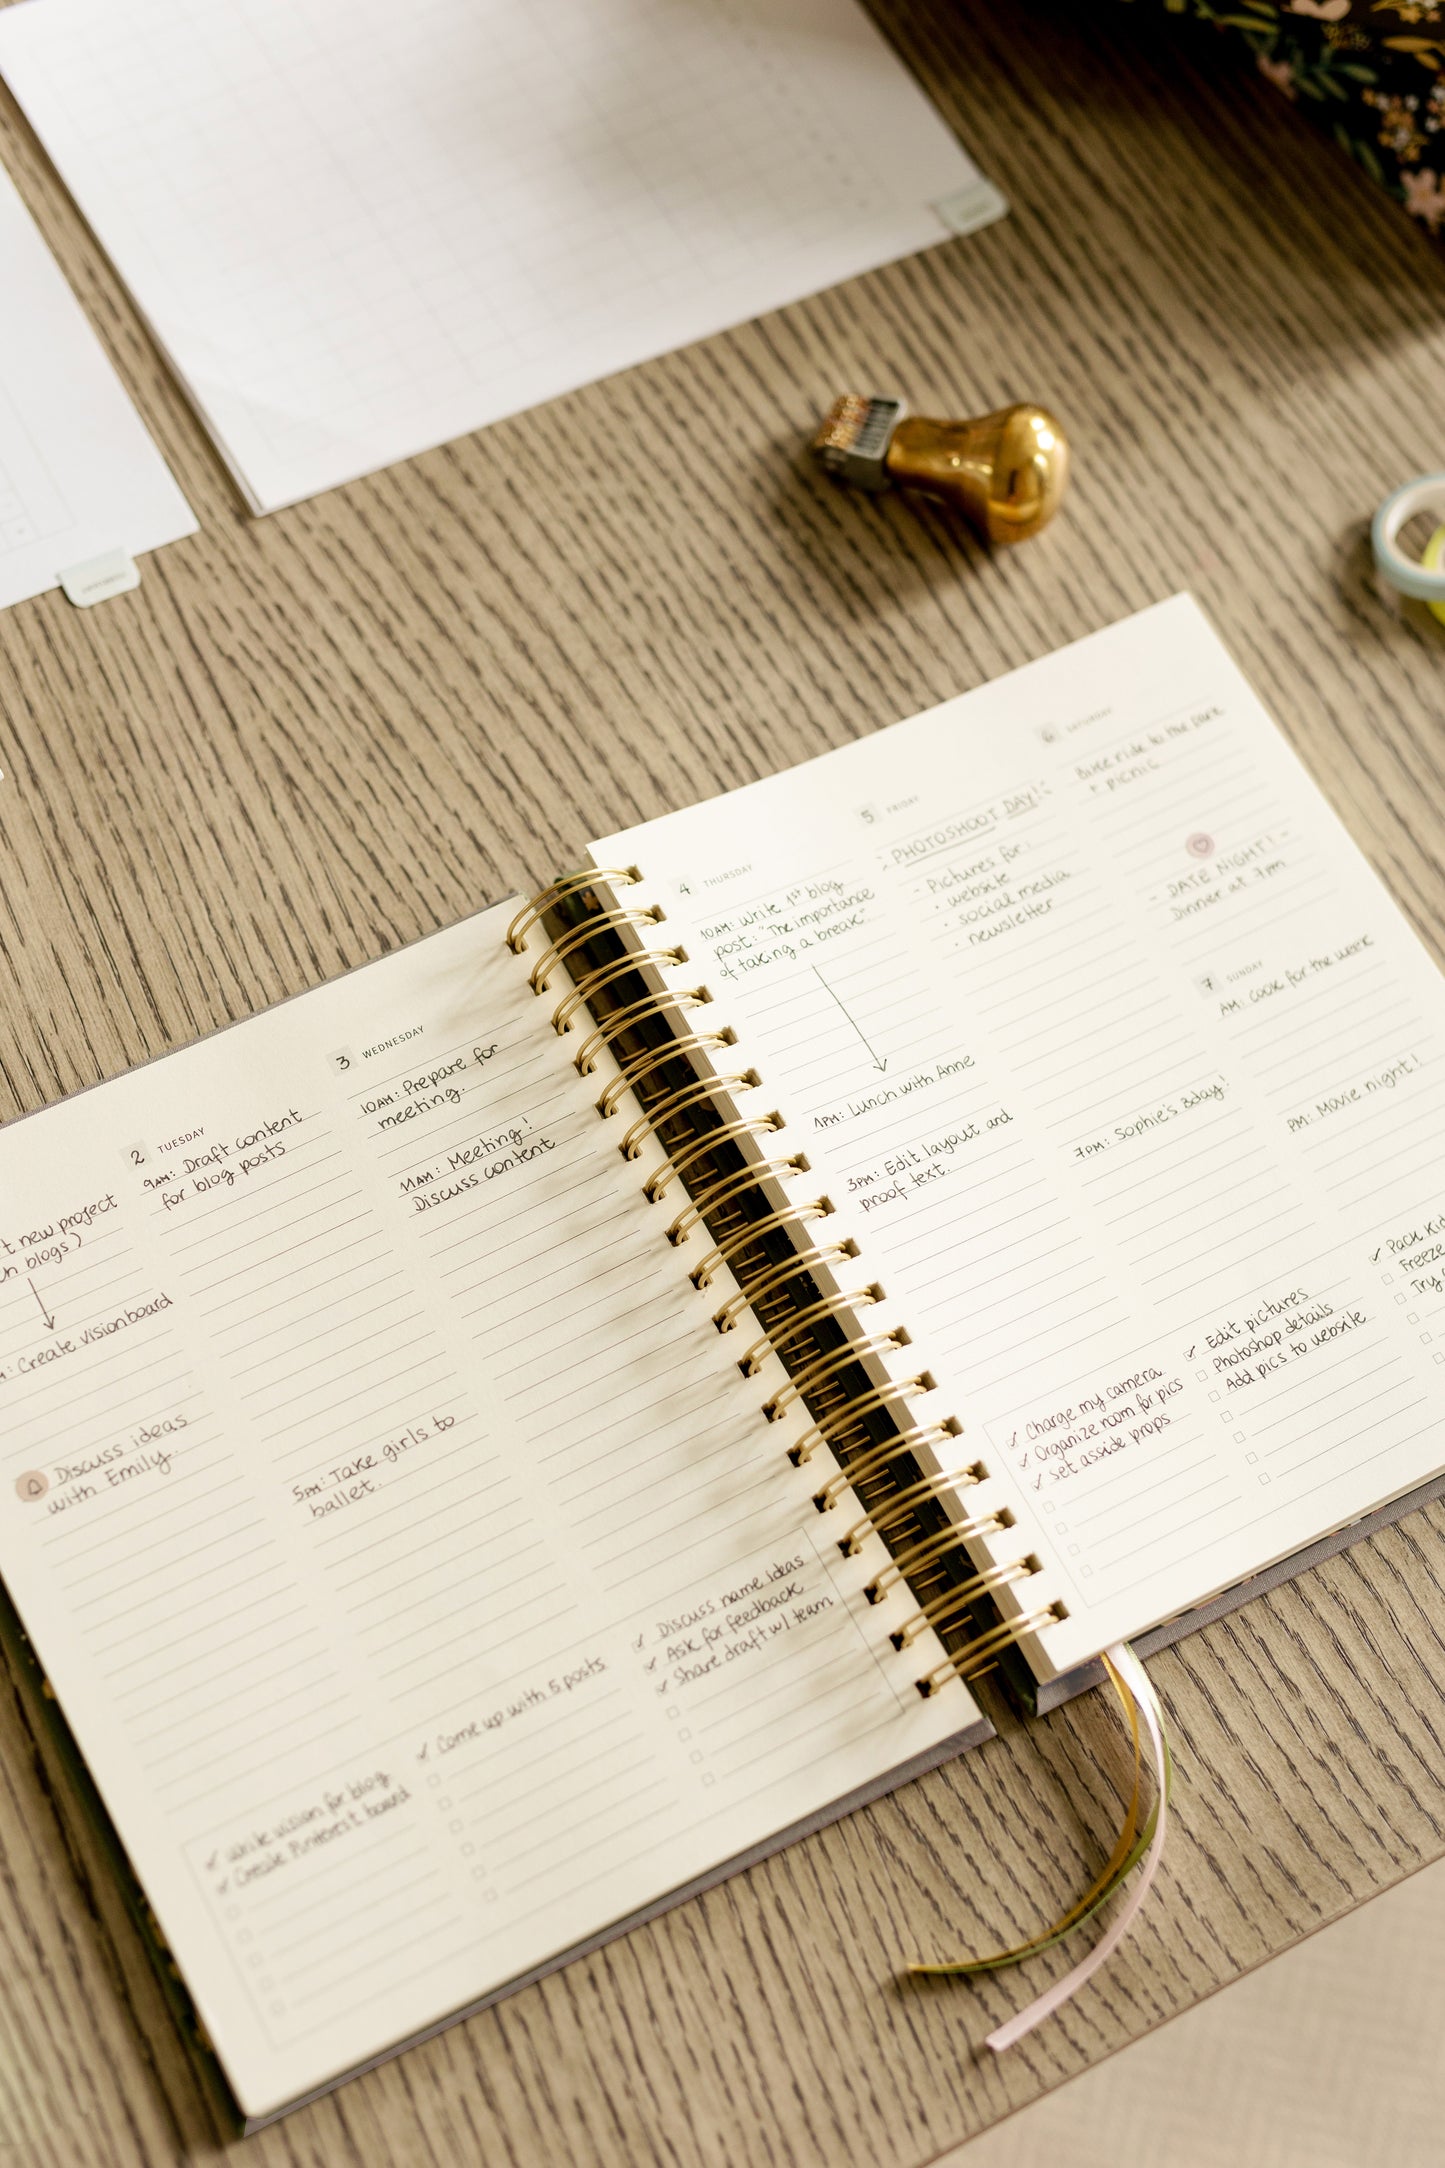 t new project
blogs)
Create visionboard
Discuss ideas
with Emily
✓ write vision for blog
✓ Create Pinterest board
2 TUESDAY
9AM: Draft content
for blog posts
5PM: Take girls to
ballet.
✓ Come up with 5 posts
3 WEDNESDAY
10AM: Prepare for
meeting.
11AM: Meeting!
Discuss content
✓ Discuss name ideas
✓ Ask for feedback
✓ Share draft w/ team
4 THURSDAY
10AM: Write 1st blog
post: "The importance
of taking a break".
1PM: Lunch with Anne
3PM: Edit layout and
proof text.
✓ Charge my camera
✓ Organize room for pics
✓ Set asside props
5 FRIDAY
PHOTOSHOOT DAY!
- Pictures for:
• website
• social media
• newsletter
7PM: Sophie's Bday!
✓ Edit pictures
Photoshop details
Add pics to website
6 SATURDAY
Bike ride to the park
+ picnic
- DATE NIGHT! -
Dinner at 7pm
7 SUNDAY
AM: Cook for the week
PM: Movie night!
✓ Pack kid
Freeze
Try